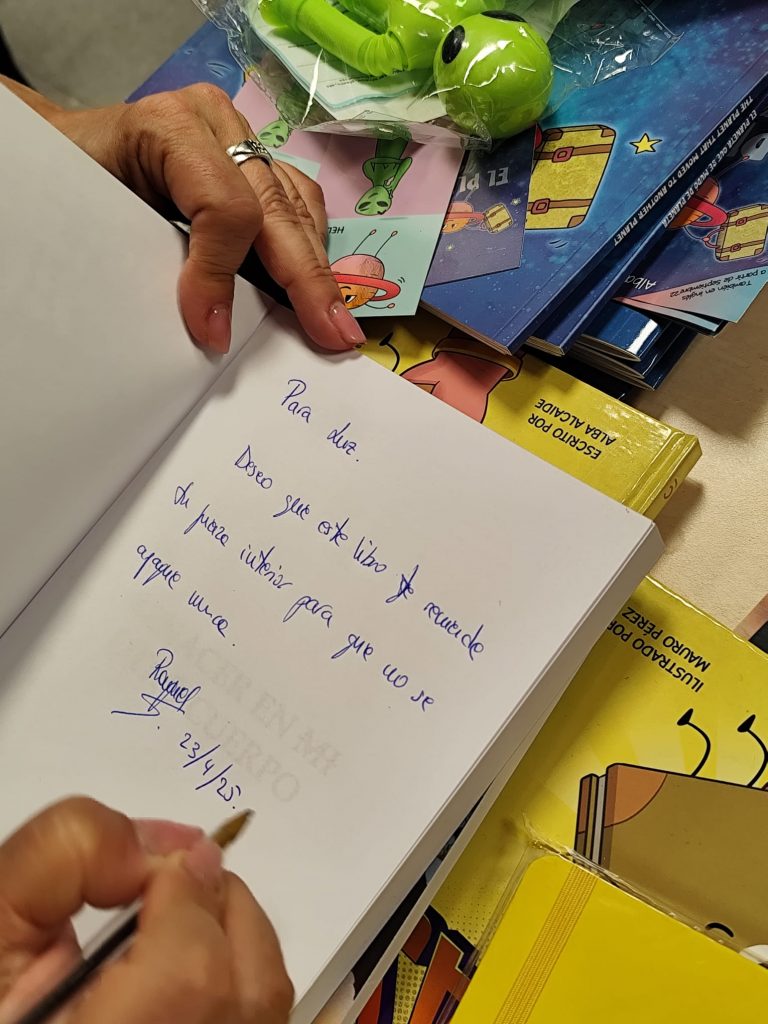 EL PL
HEL
EL PLANETA QUE SE MUDÓ DE PLANETA
THE PLANET THAT MOVED TO ANOTHER PLANET
Alba
También en inglés
a partir de Septiembre 22
ESCRITO POR
ALBA ALCAIDE
Para Luz.
Deseo que este libro te recuerde
tu fuerza interior para que no se
apague nunca.
Raquel
23/4/25.
EN MI
CUERPO
ILUSTRADO POR
MAURO PÉREZ